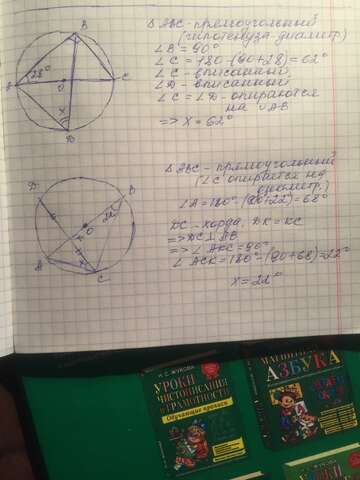 Δ ABC - прямоугольный
(гипотенуза-диаметр)
∠B = 90°
∠C = 180-(90+28)=62°
∠C - вписанный,
∠D - вписанный
∠C = ∠D - опираются
на ∪AB
=> X = 62°
B
28°
O
C
X
D
Δ ABC - прямоугольный
(∠C опирается на
диаметр.)
∠A = 180°-(90+22)=68°
DC - хорда, DK = KC
=> DC ⊥ AB
=> ∠AKC = 90°
∠ACK = 180°-(90+68)=22°
X = 22°
D
B
22°
O
K
A
X
C
Н. С. ЖУКОВА
УРОКИ
ЧИСТОПИСАНИЯ
И ГРАМОТНОСТИ
Обучающие прописи
МАГНИТНАЯ
АЗБУКА